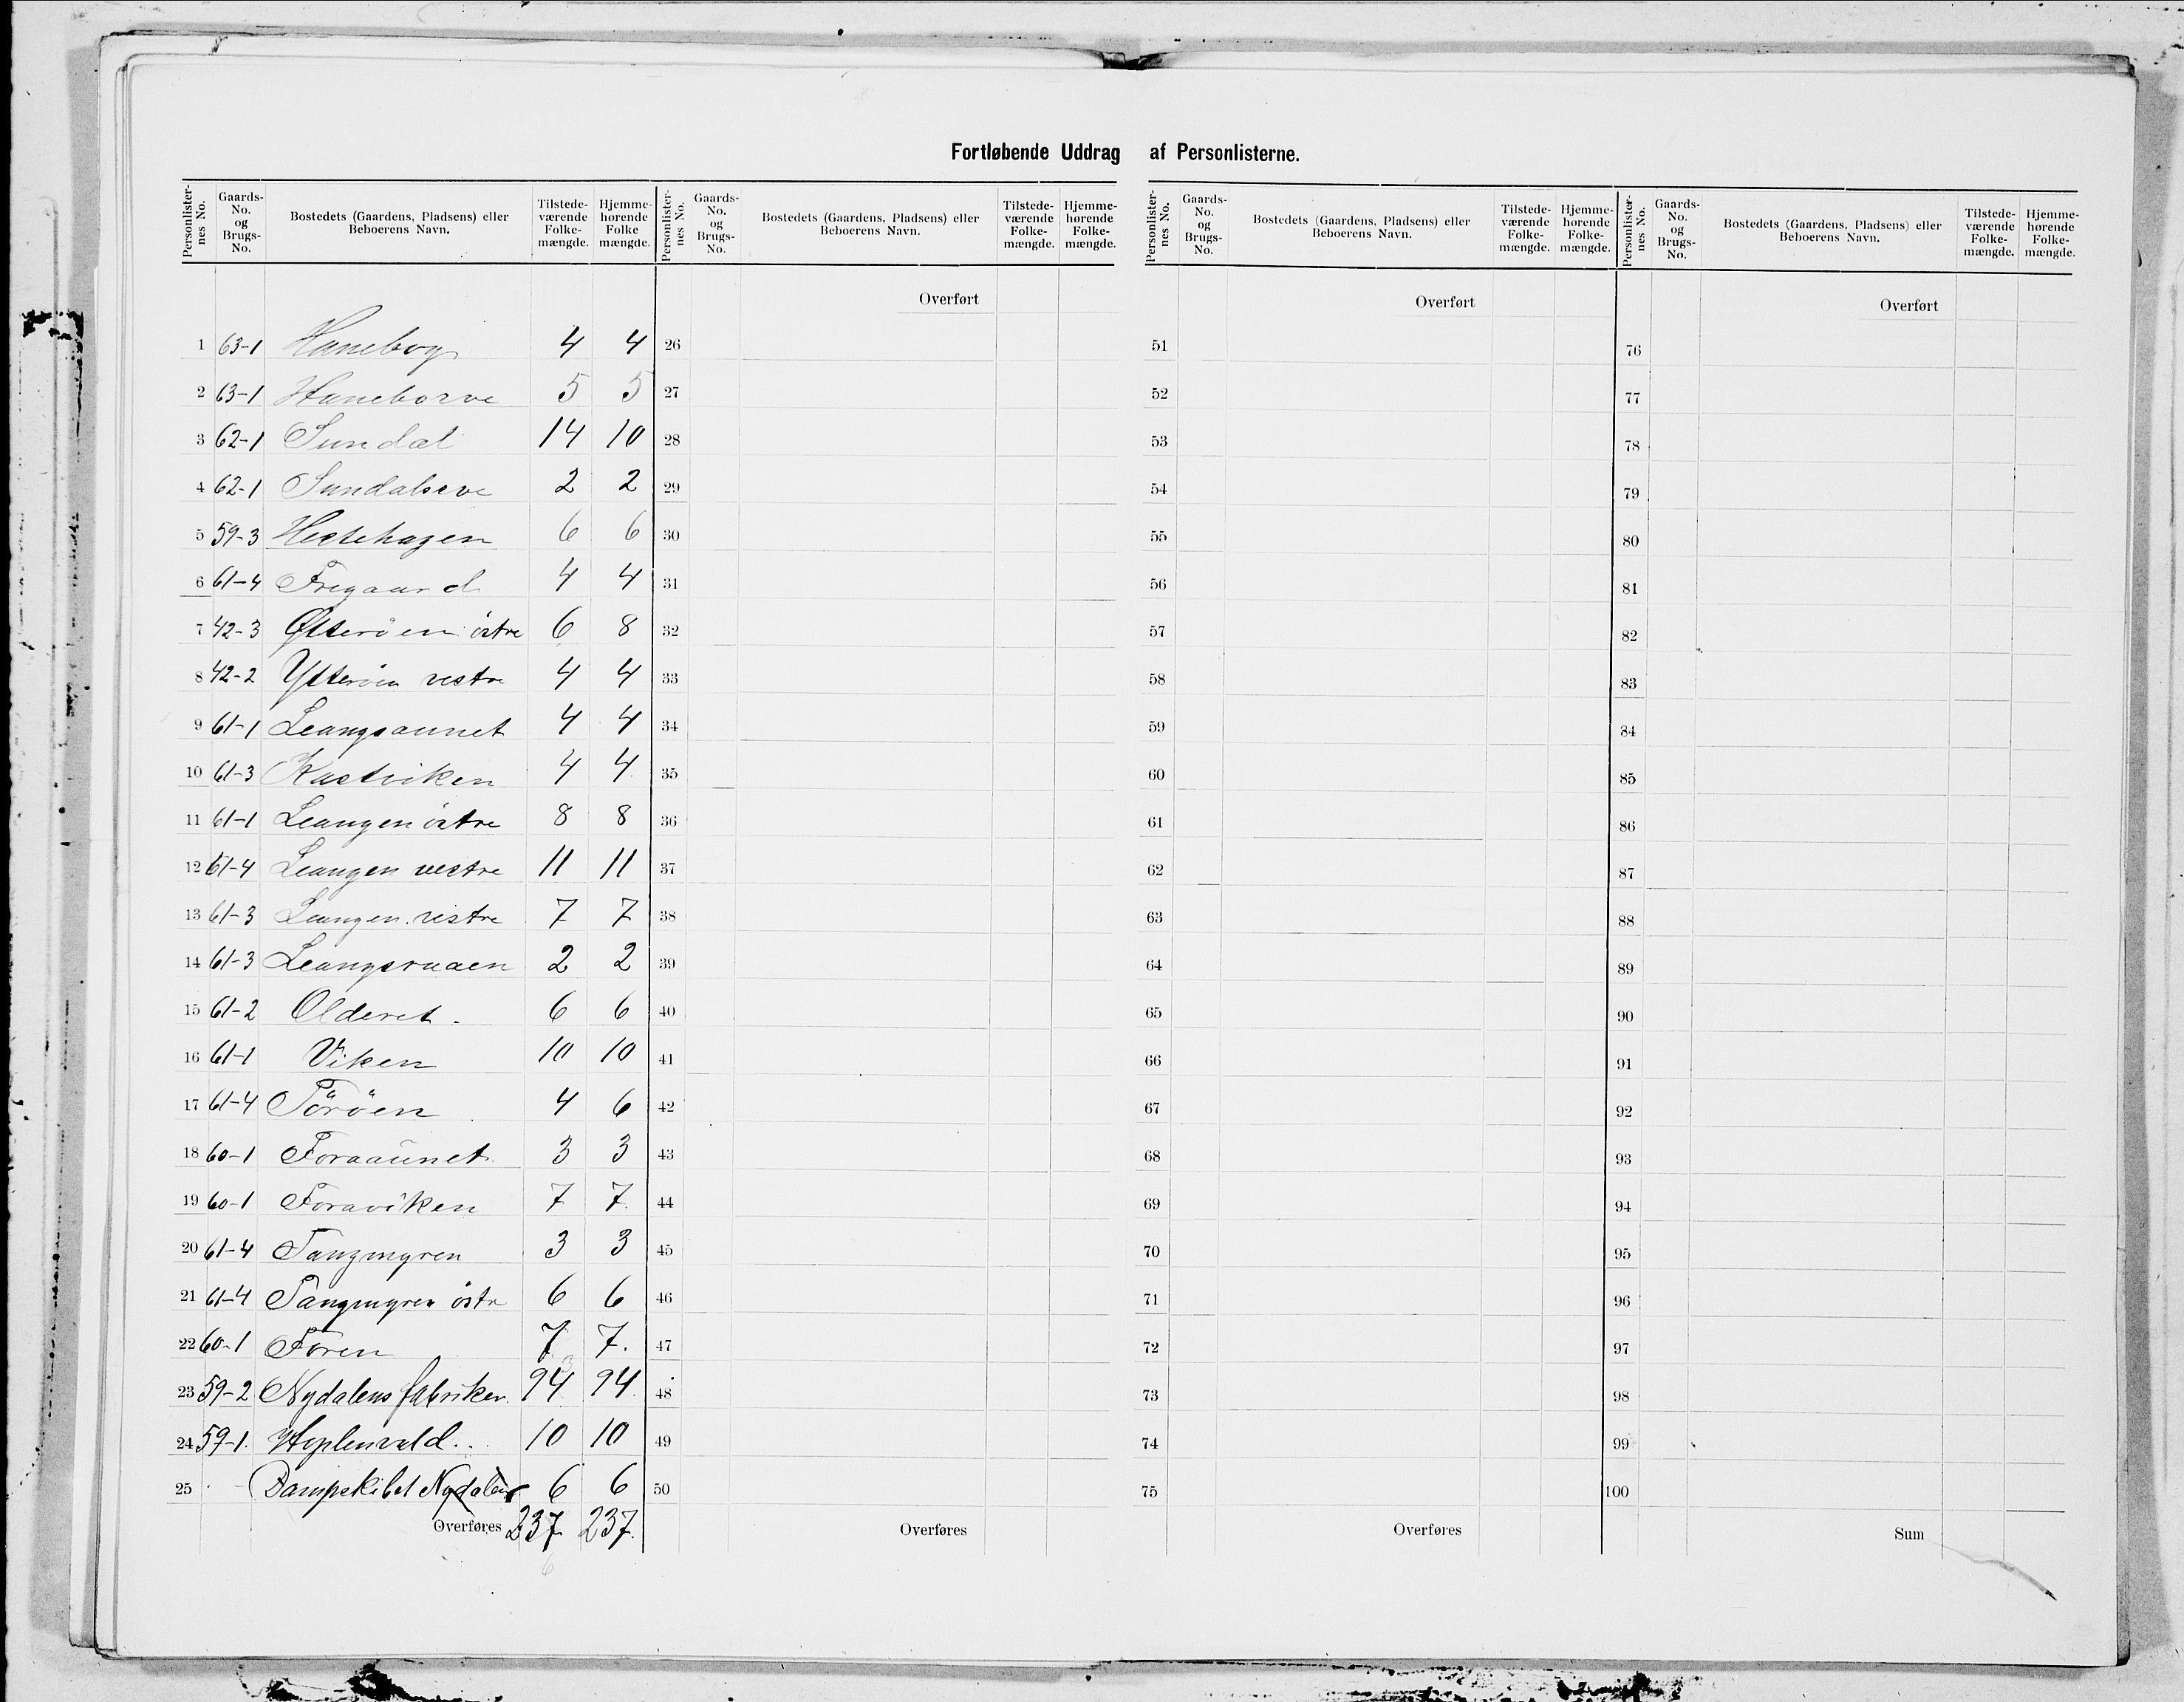 Fortløbende Uddrag af Personlisterne.
Personlister-nes No. Gaards-No. og Brugs-No. Bostedets (Gaardens, Pladsens) eller Beboerens Navn. Tilstede-værende Folke-mængde. Hjemme-hørende Folke mængde.
Personlister-nes No. Gaards-No. og Brugs-No. Bostedets (Gaardens, Pladsens) eller Beboerens Navn. Tilstede-værende Folke-mængde. Hjemme-hørende Folke-mængde.
Personlister-nes No. Gaards-No. og Brugs-No. Bostedets (Gaardens, Pladsens) eller Beboerens Navn. Tilstede-værende Folke-mængde. Hjemme-hørende Folke-mængde.
Personlister-nes No. Gaards-No. og Brugs-No. Bostedets (Gaardens, Pladsens) eller Beboerens Navn. Tilstede-værende Folke-mængde. Hjemme-hørende Folke-mængde.
Overført Overført Overført
1 63-1 Hanebog 4 4 26 51 76
2 63-1 Haneborve 5 5 27 52 77
3 62-1 Sundal 14 10 28 53 78
4 62-1 2 2 29 54 79
5 59-3 Hestehagen 6 6 30 55 80
6 61-4 Fregaard 4 4 31 56 81
7 42-3 Ytterøen östre 6 8 32 57 82
8 42-2 Ytterøen vestre 4 4 33 58 83
9 61-1 Leangsaunet 4 4 34 59 84
10 61-3 Kastviken 4 4 35 60 85
11 61-1 Leangen östre 8 8 36 61 86
12 61-4 Leangen vestre 11 11 37 62 87
13 61-3 Leangen vestre 7 7 38 63 88
14 61-3 Leangsraaen 2 2 39 64 89
15 61-2 Olderet. 6 6 40 65 90
16 61-1 Viken 10 10 41 66 91
17 61-4 Töröen 4 6 42 67 92
18 60-1 Foraaunet 3 3 43 68 93
19 60-1 Foraviken 7 7 44 69 94
20 61-4 Tangmyren 3 3 45 70 95
21 61-4 Tangmyren östr 6 6 46 71 96
22 60-1 Foren 7 7. 47 72 97
23 59-2 Nydalens fabriker 94 94. 48 73 98
24 59-1. Hoplenvald.. 10 10 49 74 99
25 Dampskibet Nydalen 6 6 50 75 100
Overføres 237 237. Overføres Overføres Sum